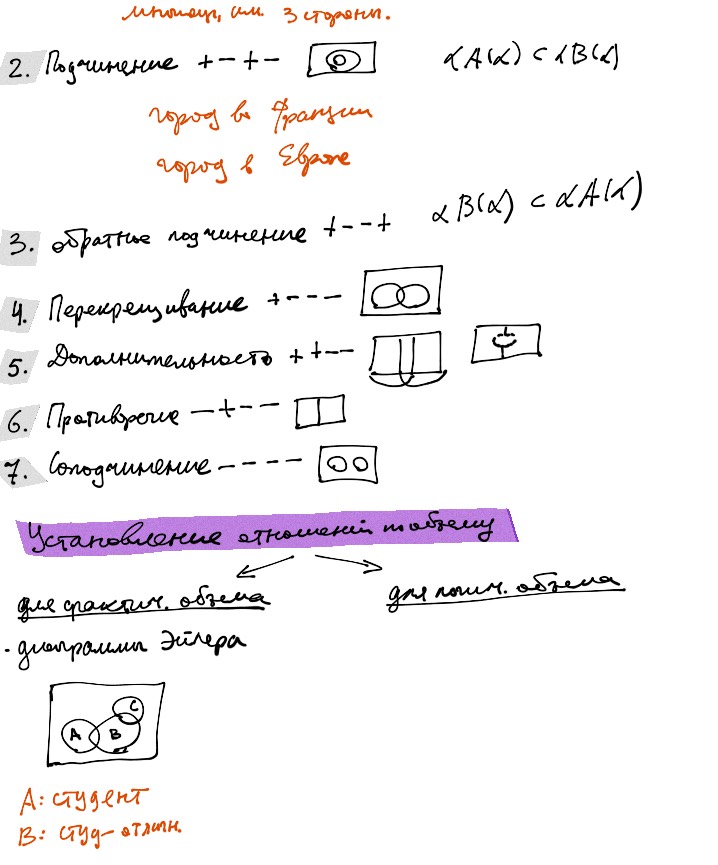 многоуг, им. 3 стороны.
2. Подчинение + − + − αA(α) ⊂ αB(α)
город во Франции
город в Европе
3. обратное подчинение + − − + αB(α) ⊂ αA(α)
4. Перекрещивание + − − −
5. Дополнительность + + − −
6. Противоречие − + − −
7. Соподчинение − − − −
Установление отношений по объему
для фактич. объема для логич. объема
· диаграммы Эйлера
A B C
A: студент
B: студ-отличн.